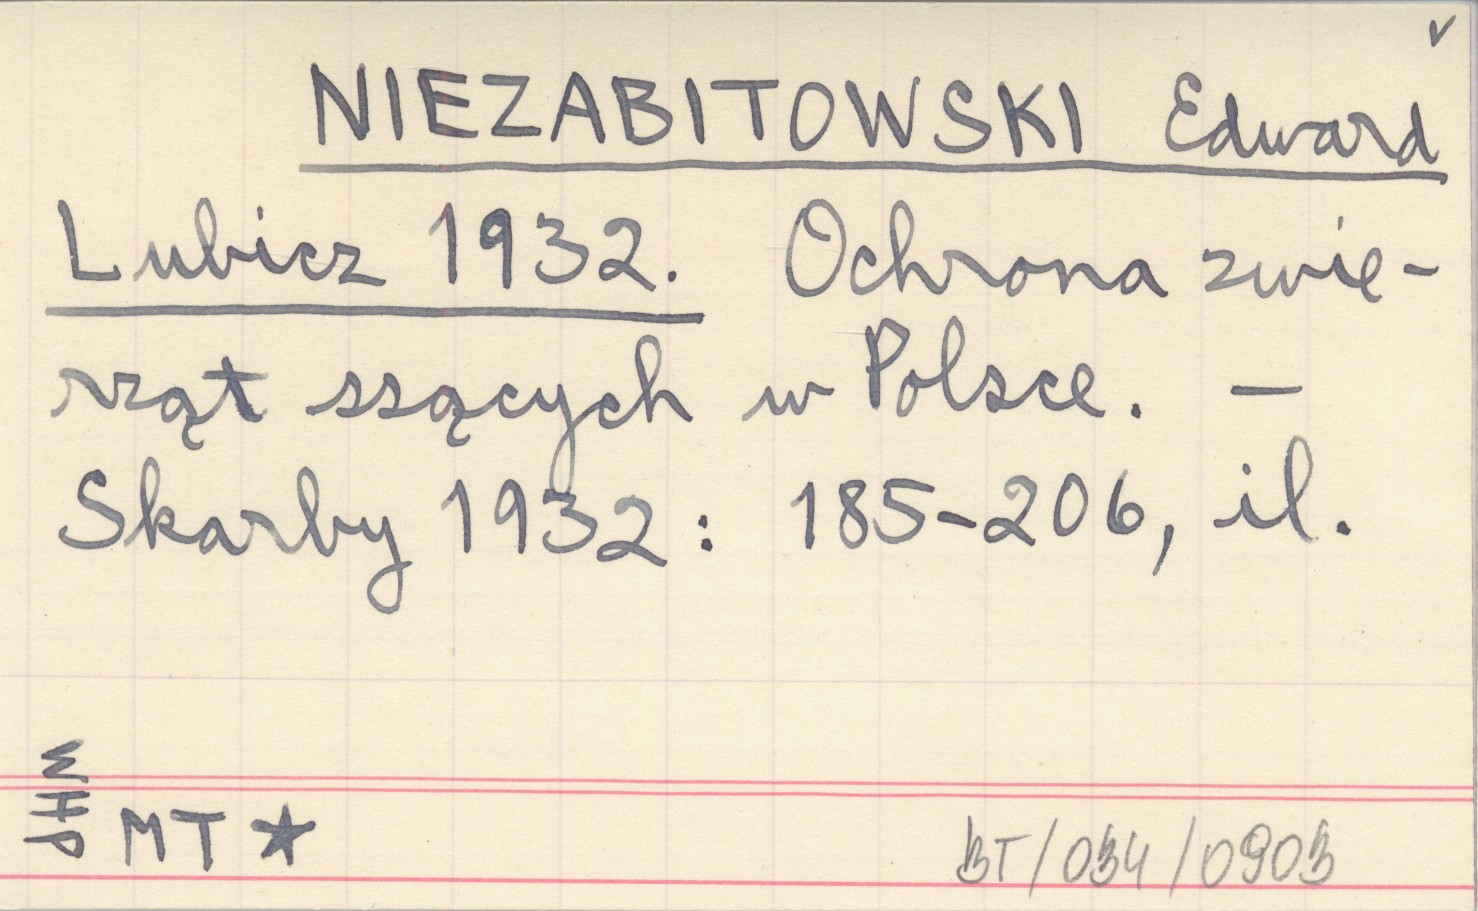 ✓
NIEZABITOWSKI Edward
Lubicz 1932. Ochrona zwie-
rząt ssących w Polsce. —
Skarby 1932: 185-206, il.
MT ★
BT/034/0903